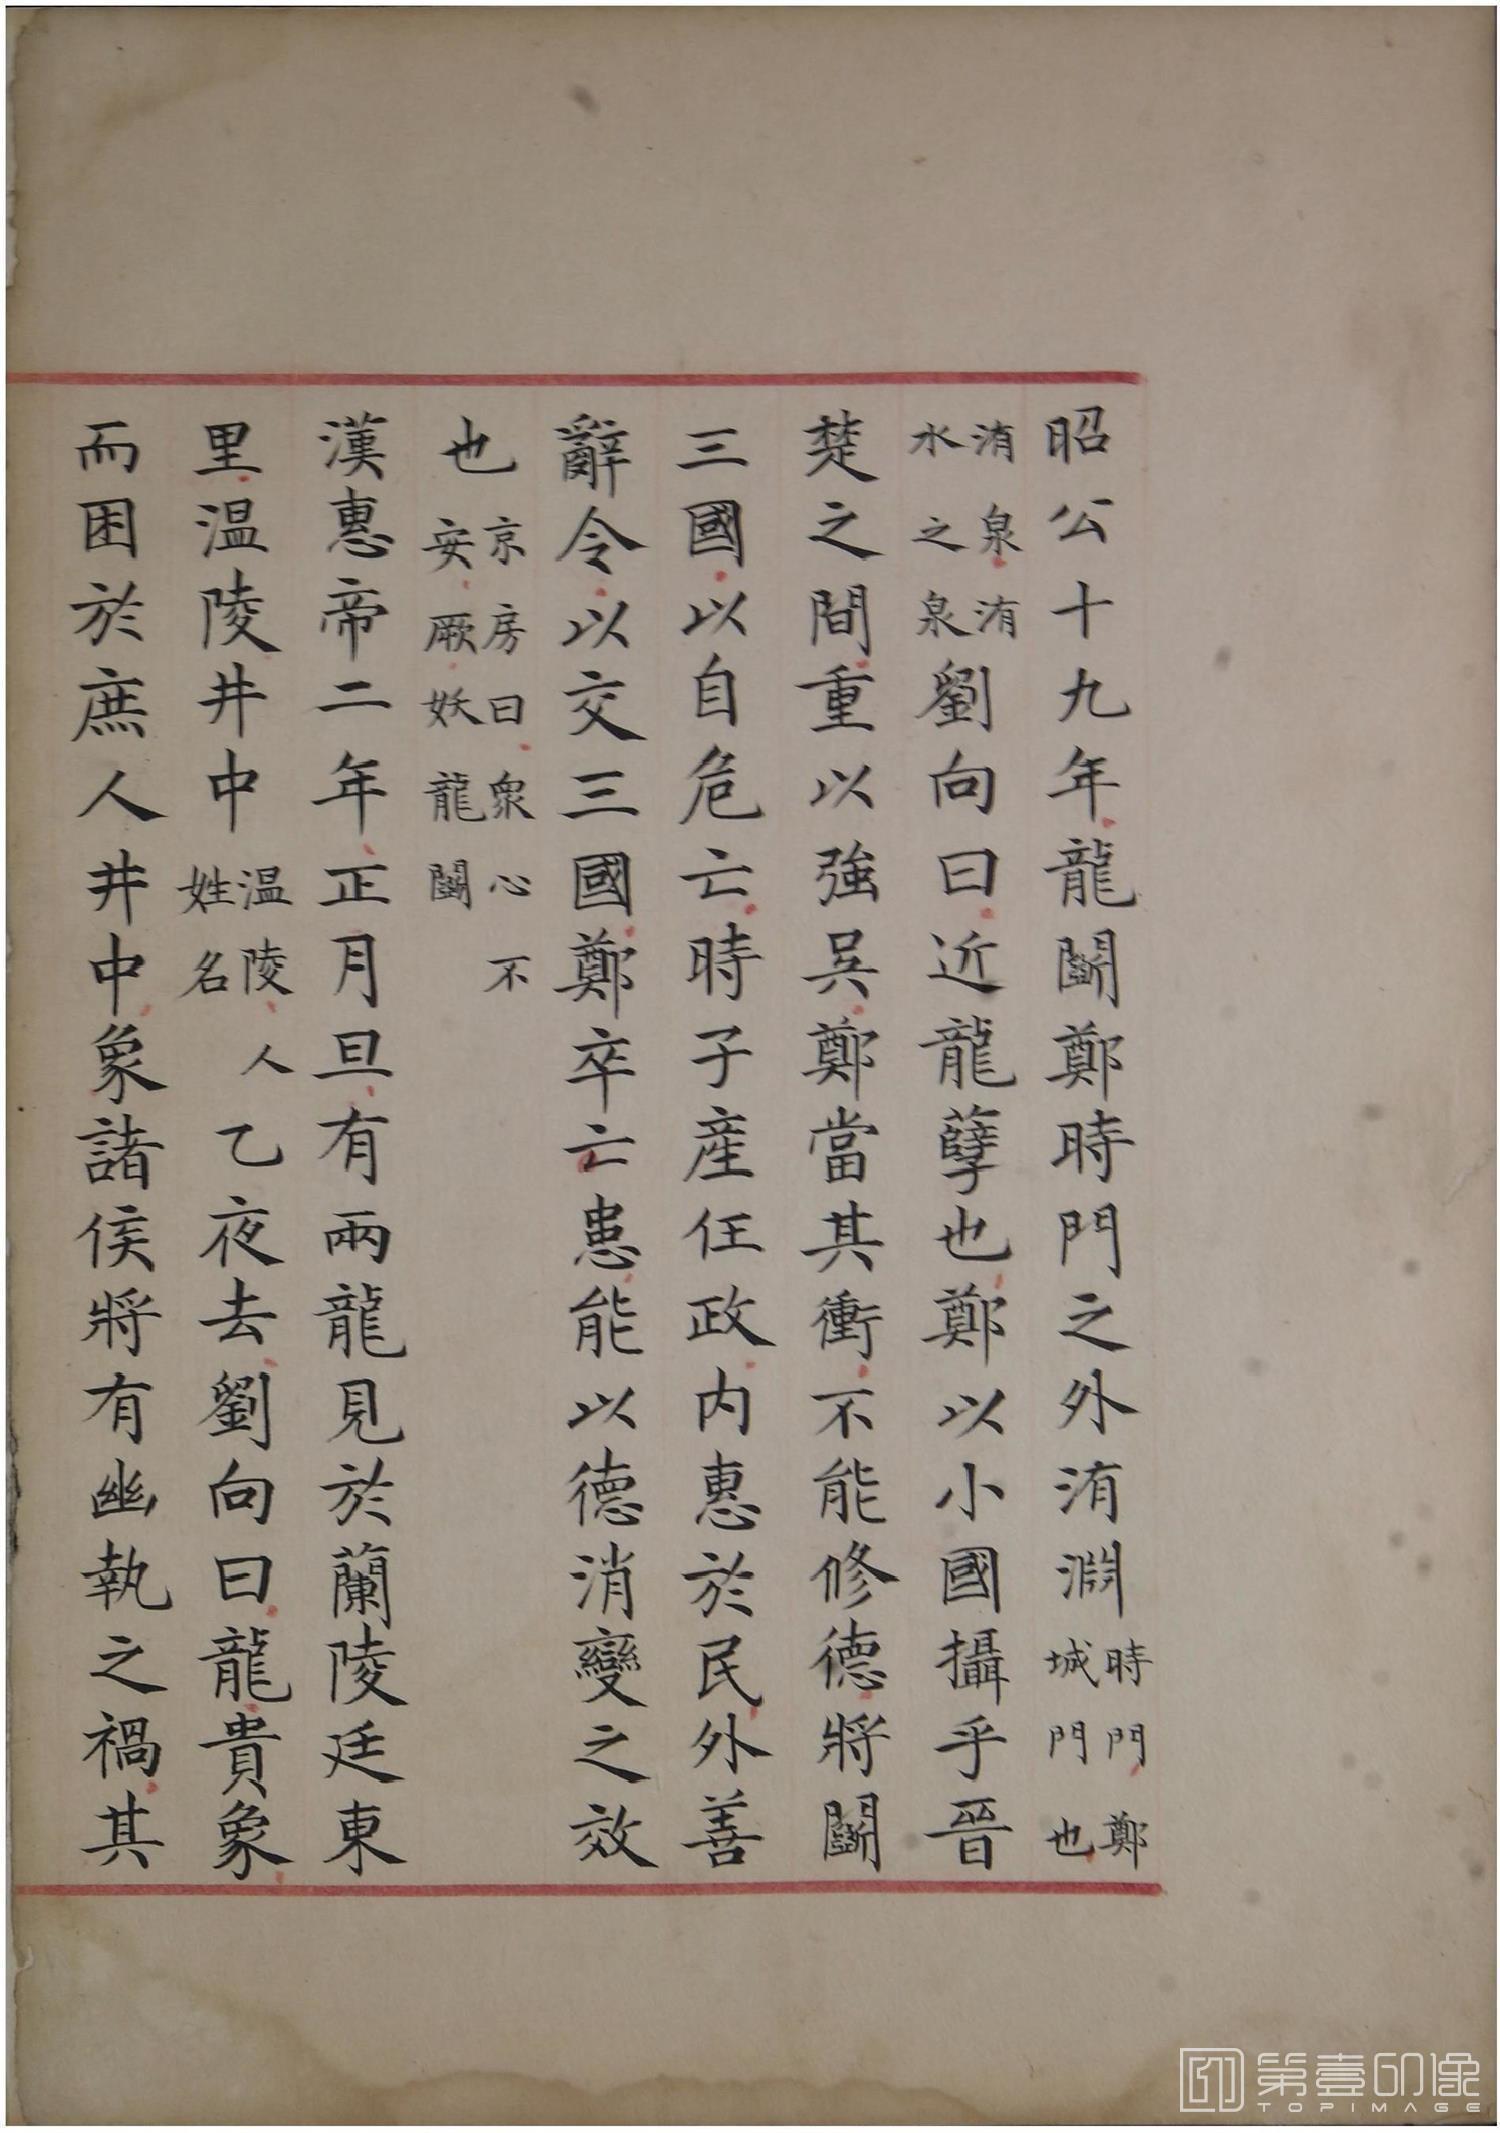 昭公十九年龍鬭鄭時門之外洧淵時門鄭城門也
洧泉洧水之泉劉向曰近龍孽也鄭以小國攝乎晉
楚之間重以強吳鄭當其衝不能修德將鬭
三國以自危亡時子產任政內惠於民外善
辭令以交三國鄭卒亡患能以德消變之效
也京房曰衆心不安厥妖龍鬭
漢惠帝二年正月旦有兩龍見於蘭陵廷東
里温陵井中温陵人姓名乙夜去劉向曰龍貴象
而困於庶人井中象諸侯將有幽執之禍其
第壹印像
TOPIMAGE